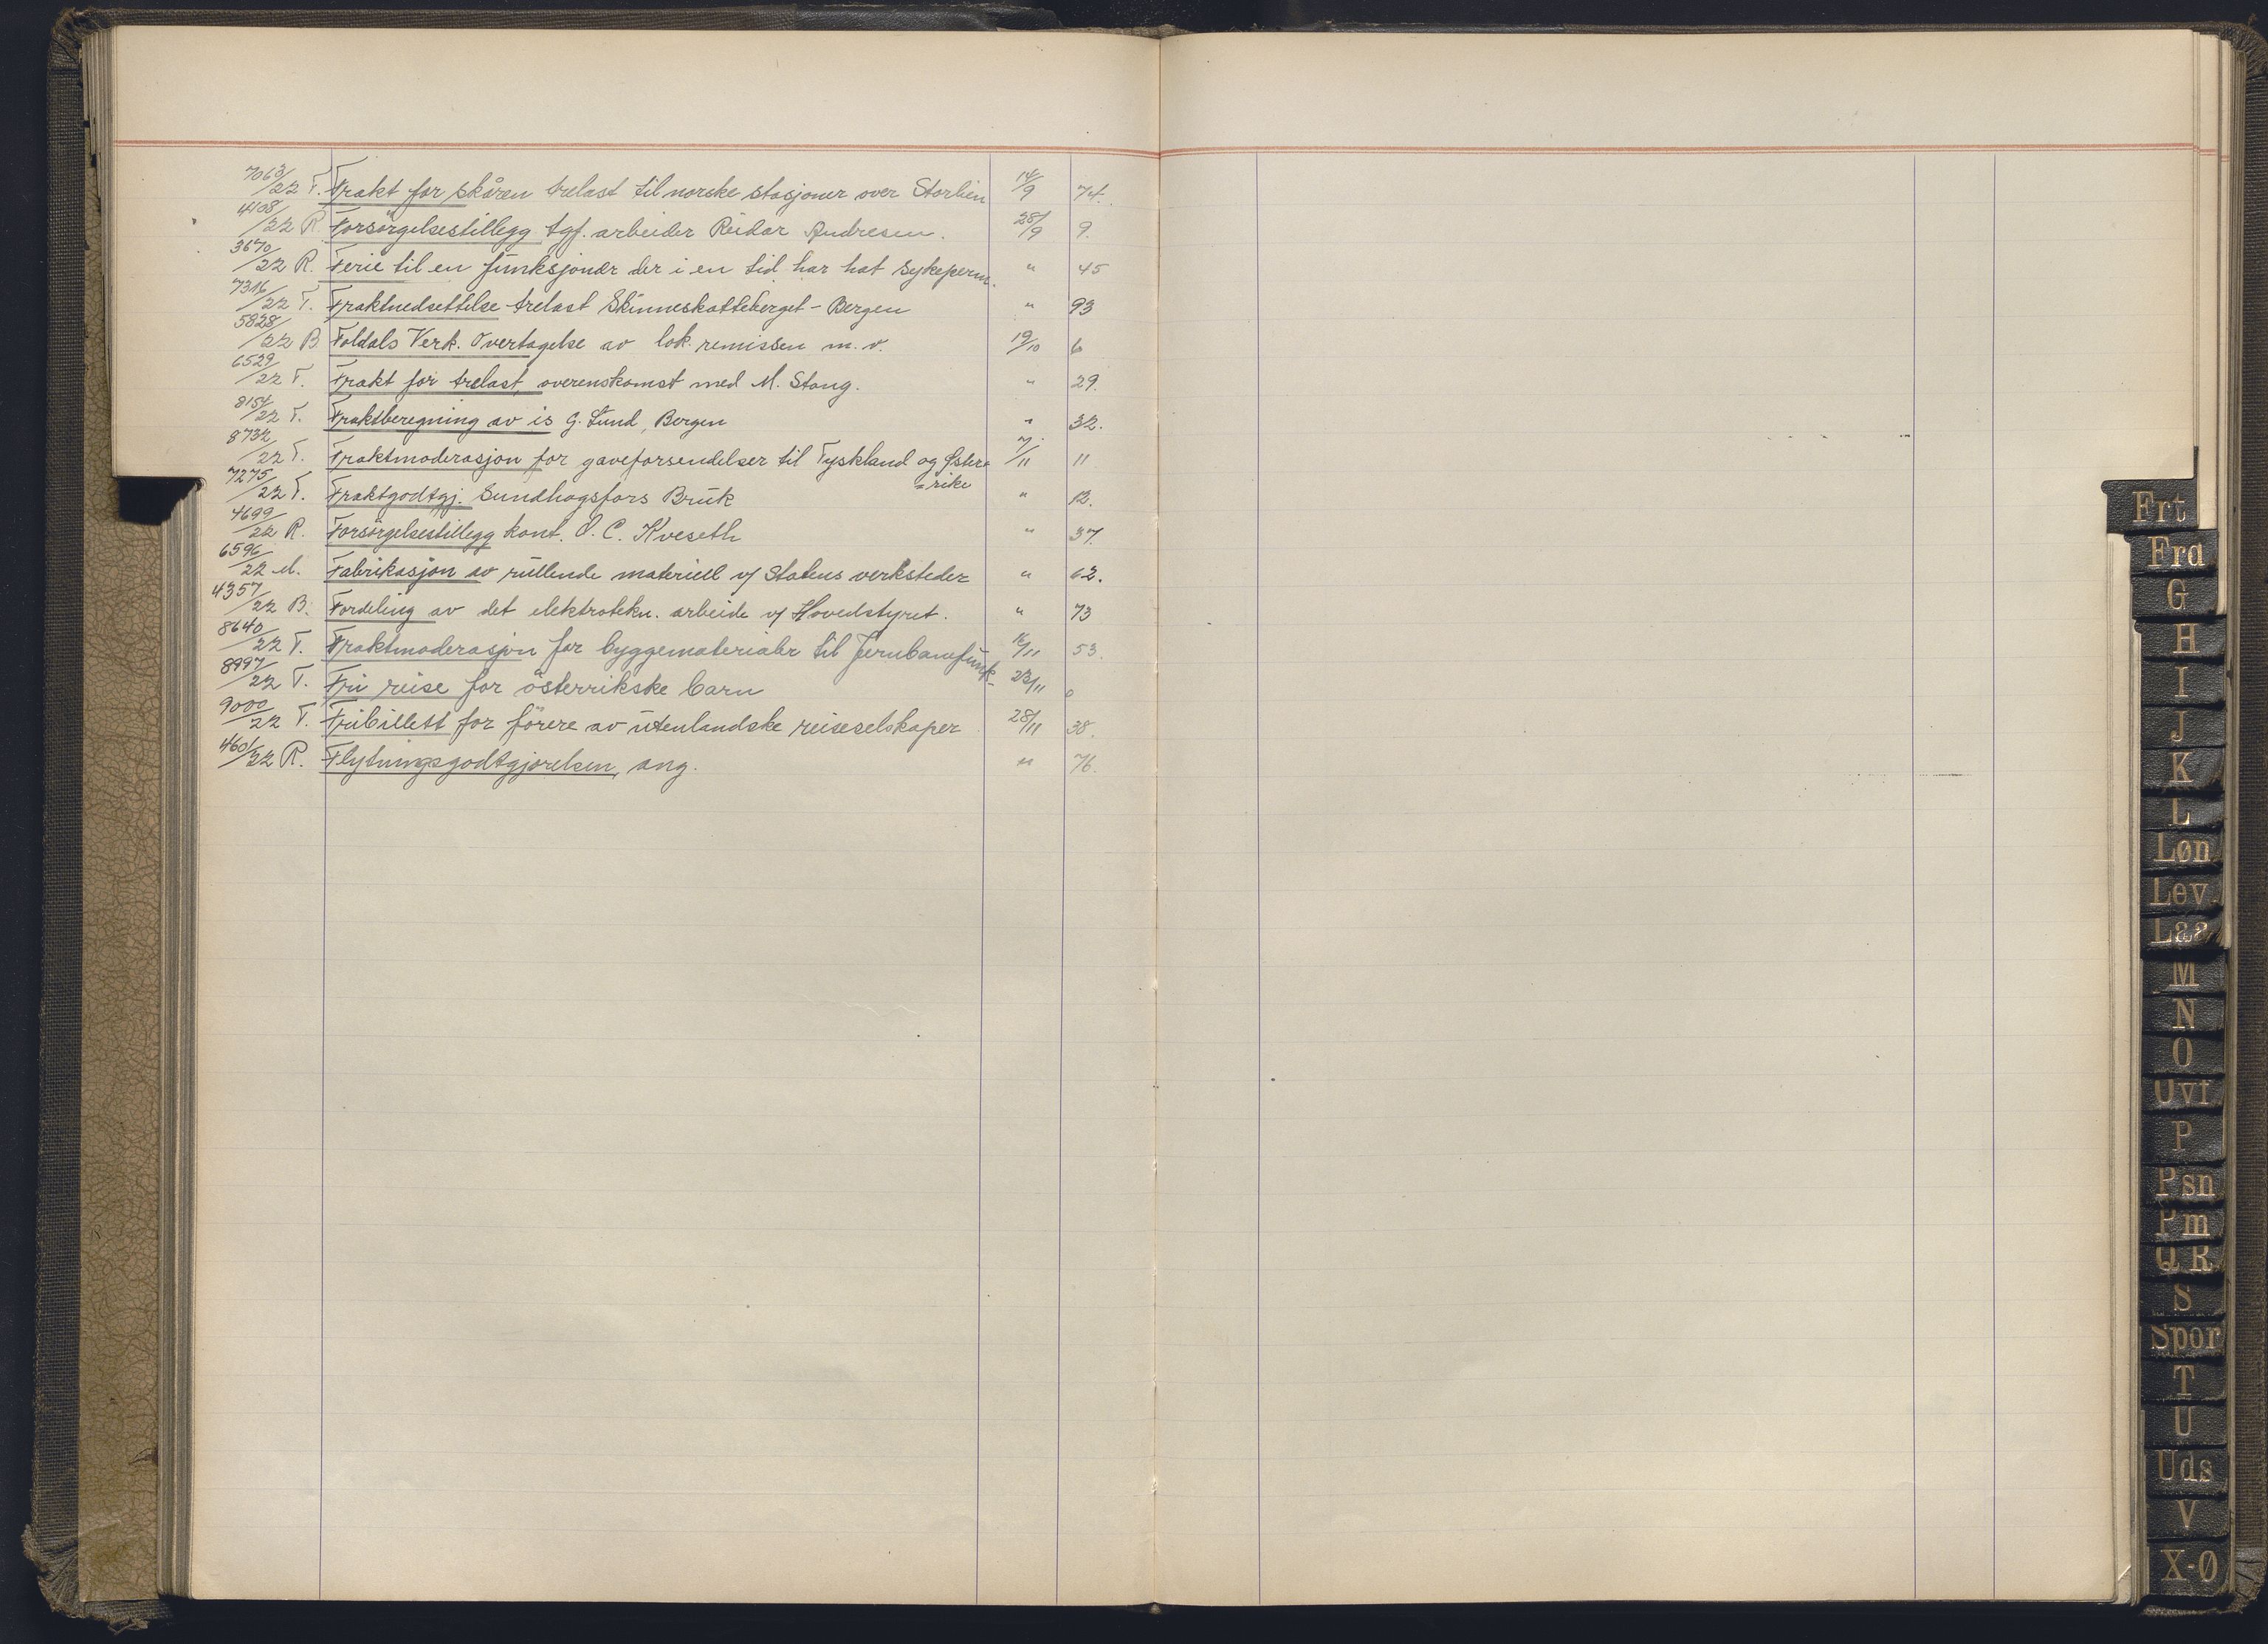 7063/22 T. Frakt for skåren trelast til norske stasjoner over Storlien 14/9 74.
4108/22 R. Forsörgelsestillegg tgf. arbeider Reidar Andresen. 28/9 9.
3670/22 R. Ferie til en funksjonær der i en tid har hat sykeperm. " 45
7316/22 T. Fraktnedsettelse trelast Skinneskatteberget - Bergen " 93
5828/22 B. Foldals Verk. Overtagelse av lok. remissen m. v. 19/10 6
6529/22 T. Frakt for trelast, overenskomst med M. Stang. " 29.
8154/22 T. Fraktberegning av is G. Lund, Bergen " 32.
8732/22 T. Fraktmoderasjon for gaveforsendelser til Tyskland og Øster= 7/11 11
=rike
7275/22 T. Fraktgodtgj. Sundhagsfors Bruk " 12.
4699/22 R. Forsörgelsestillegg kont. O. C. Kveseth " 37.
6596/22 M. Fabrikasjon av rullende materiell v/ Statens verksteder " 62.
4357/22 B. Fordeling av det elektrotekn. arbeide v/ Hovedstyret. " 73
8640/22 T. Fraktmoderasjon for byggematerialer til Jernbanefunk- 16/11 53.
8997/22 T. Fri reise for österrikske barn 23/11 0
9000/22 T. Fribillett for förere av utenlandske reiseselskaper 28/11 38.
4601/22 R. Flytningsgodtgjørelsen, ang. " 76.
Frt
Fra
G
H
I
J
K
L
Løn
Lev.
Laa
M
N
O
Ovf
P
Psn
Pm
Q R
S
Spor
T
U
Uds
V
X-Ø